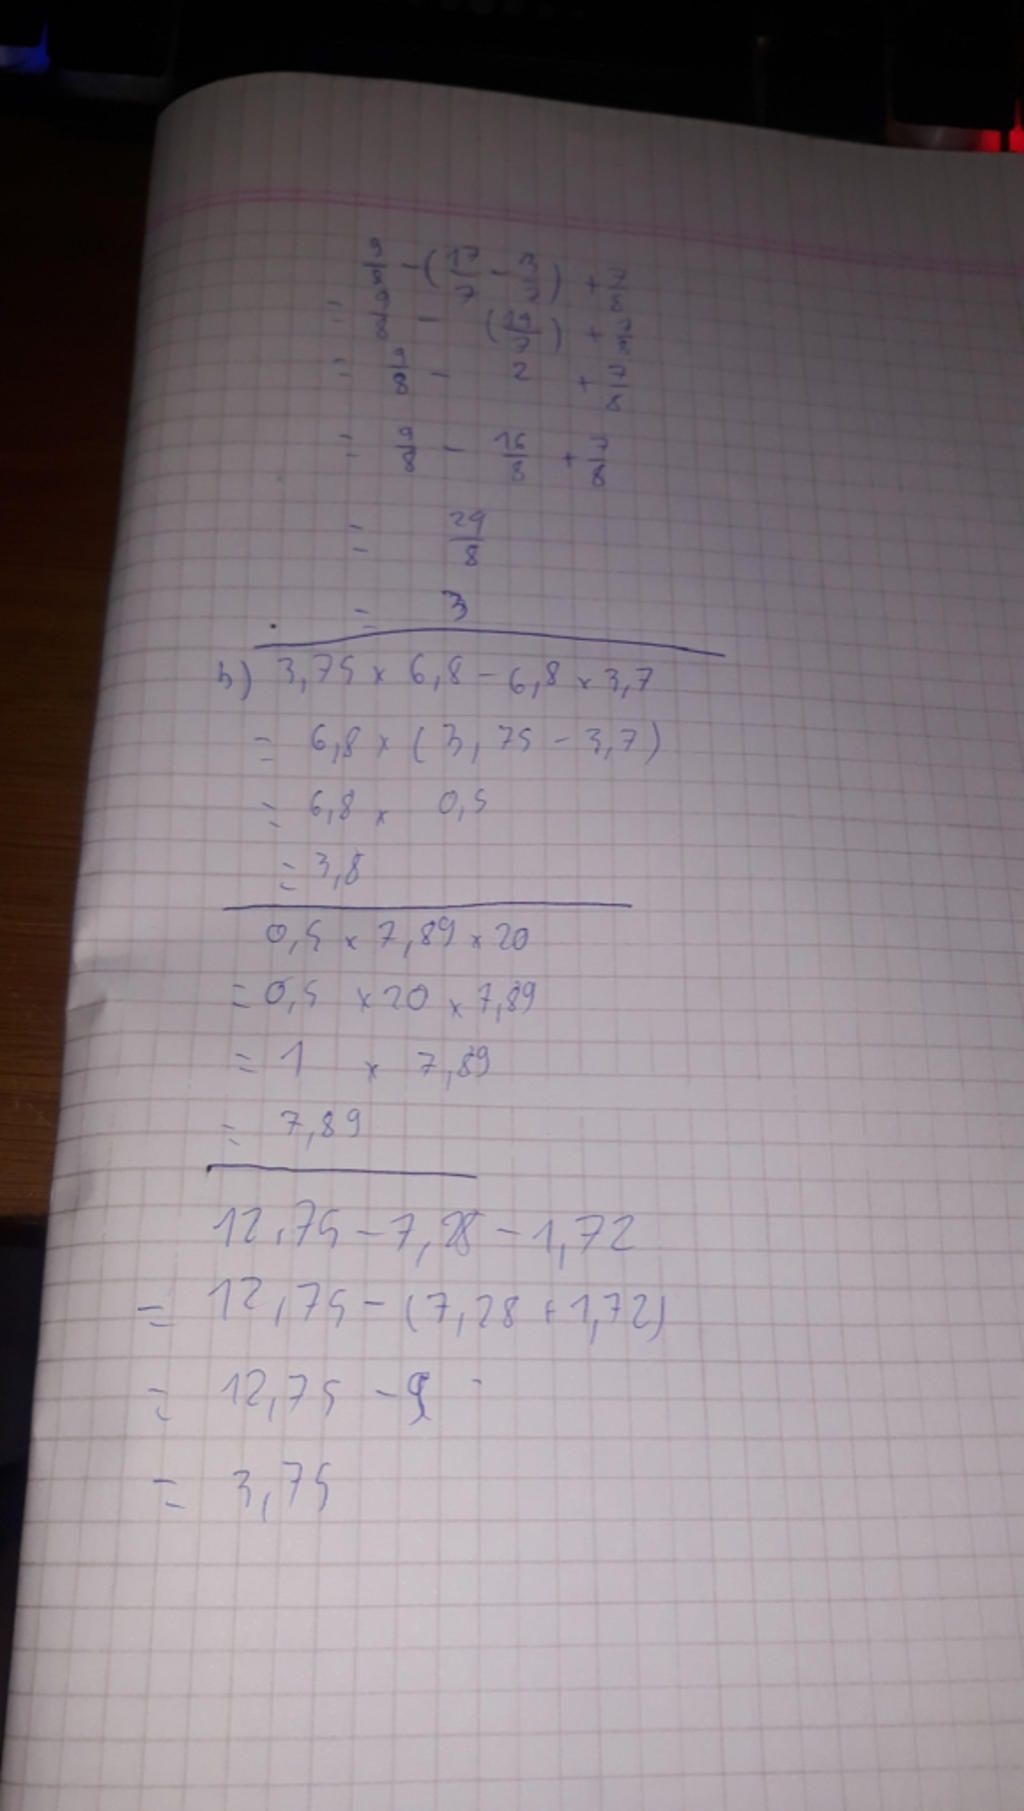 9/8 - (17/7 - 3/7) + 7/8
= 9/8 - (14/7) + 7/8
= 9/8 - 2 + 7/8
= 9/8 - 16/8 + 7/8
= 29/8
= 3
b) 3,75 x 6,8 - 6,8 x 3,7
= 6,8 x (3,75 - 3,7)
= 6,8 x 0,5
= 3,8
0,5 x 7,89 x 20
= 0,5 x 20 x 7,89
= 1 x 7,89
= 7,89
12,75 - 7,28 - 1,72
= 12,75 - (7,28 + 1,72)
= 12,75 - 9
= 3,75